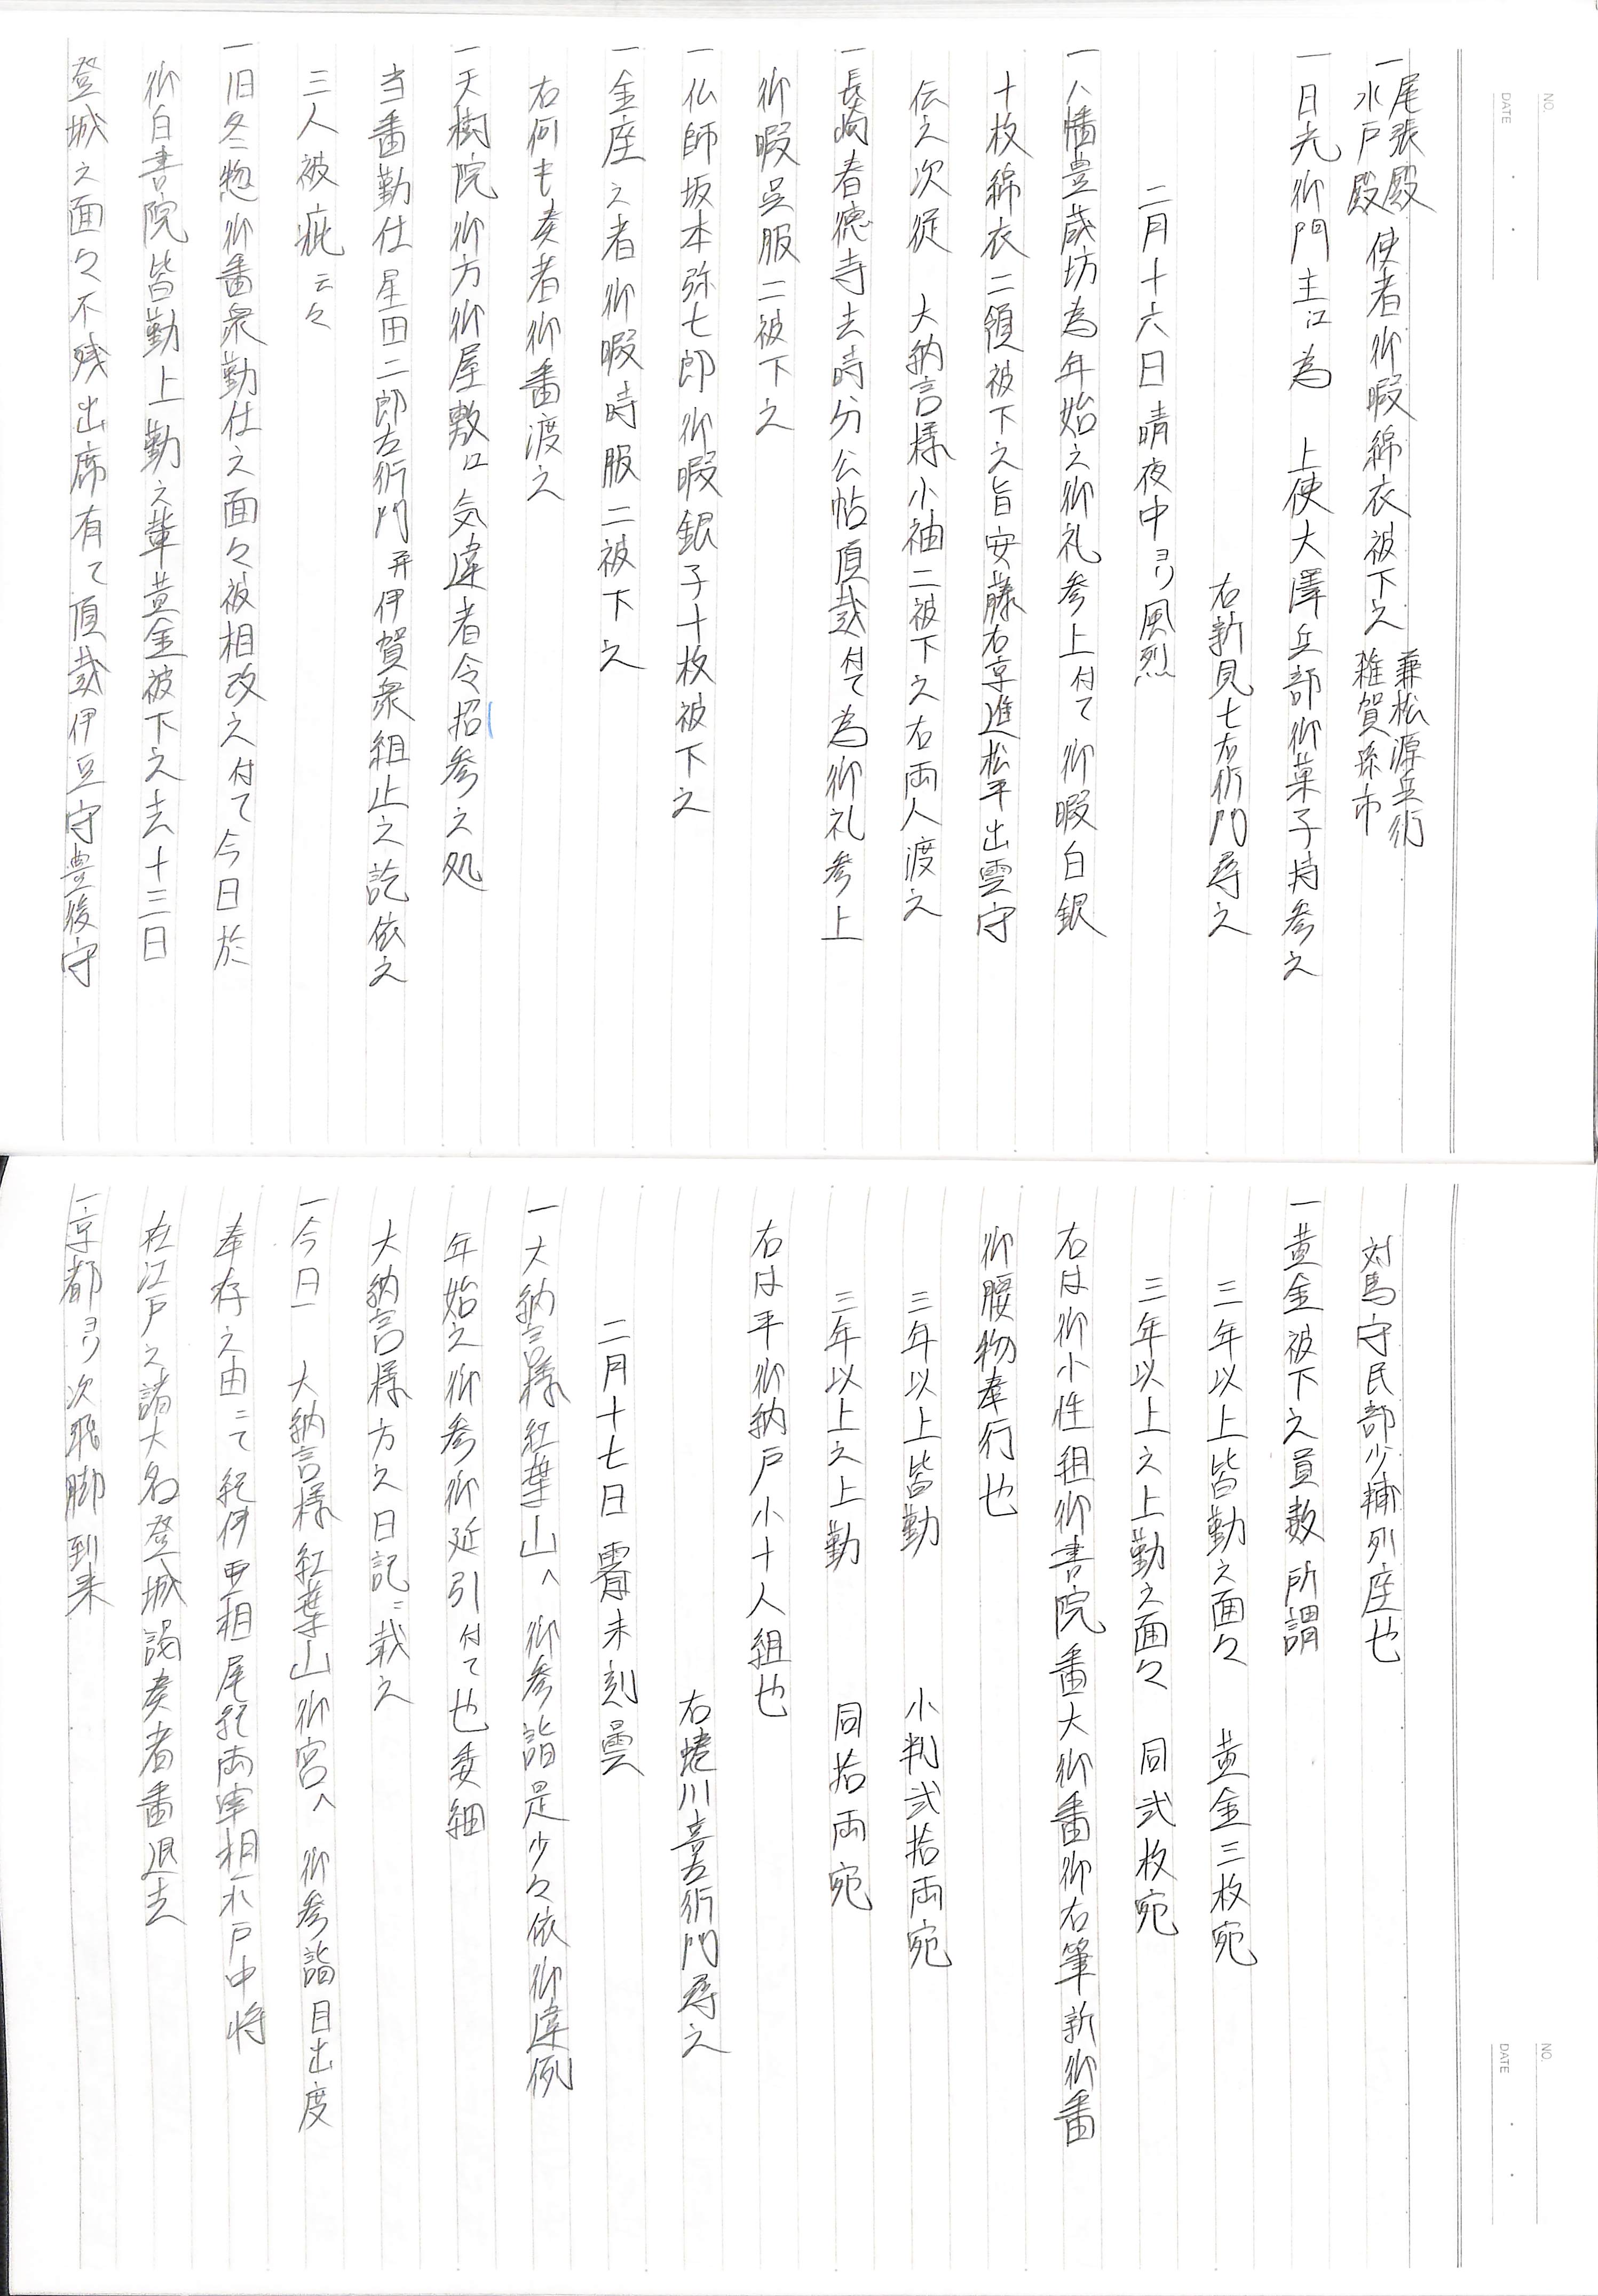 NO.
DATE
一尾張殿
水戸殿 使者御暇綿衣被下之 兼松源兵衛
雑賀孫市
一日光御門主江為 上使大澤兵部御菓子持参之
右新見七右衛門尋之
二月十六日晴夜中ヨリ風烈
一八幡豊蔵坊為年始之御礼参上付て御暇白銀
十枚綿衣二領被下之旨安藤右京進松平出雲守
伝之次従 大納言様小袖二被下之右両人渡之
一長崎春徳寺去時分公帖頂戴付て為御礼参上
御暇呉服二被下之
一仏師坂本弥七郎御暇銀子十枚被下之
一金座之者御暇時服二被下之
右何も奏者御番渡之
一天樹院御方御屋敷江気違者令招参之処
当番勤仕星田二郎左衛門并伊賀衆組止之訖依之
三人被疵云々
一旧冬惣御番衆勤仕之面々被相改之付て今日於
御白書院皆勤上勤之輩黄金被下之去十三日
登城之面々不残出席有て頂戴伊豆守豊後守
NO.
DATE
対馬守民部少輔列座也
一黄金被下之員数所謂
三年以上皆勤之面々 黄金三枚宛
三年以上之上勤之面々 同弐枚宛
右は御小性組御書院番大御番御右筆新御番
御腰物奉行也
三年以上皆勤 小判弐拾両宛
三年以上之上勤 同拾両宛
右は平御納戸小十人組也
右蜷川喜左衛門尋之
二月十七日霽未刻曇
一大納言様紅葉山へ御参詣是少々依御違例
年始之御参御延引付て也委細
大納言様方之日記ニ載之
一今日 大納言様紅葉山御宮へ御参詣目出度
奉存之由ニて紀伊亜相尾紀両宰相水戸中将
在江戸之諸大名登城謁奏者番退去
一京都ヨリ次飛脚到来